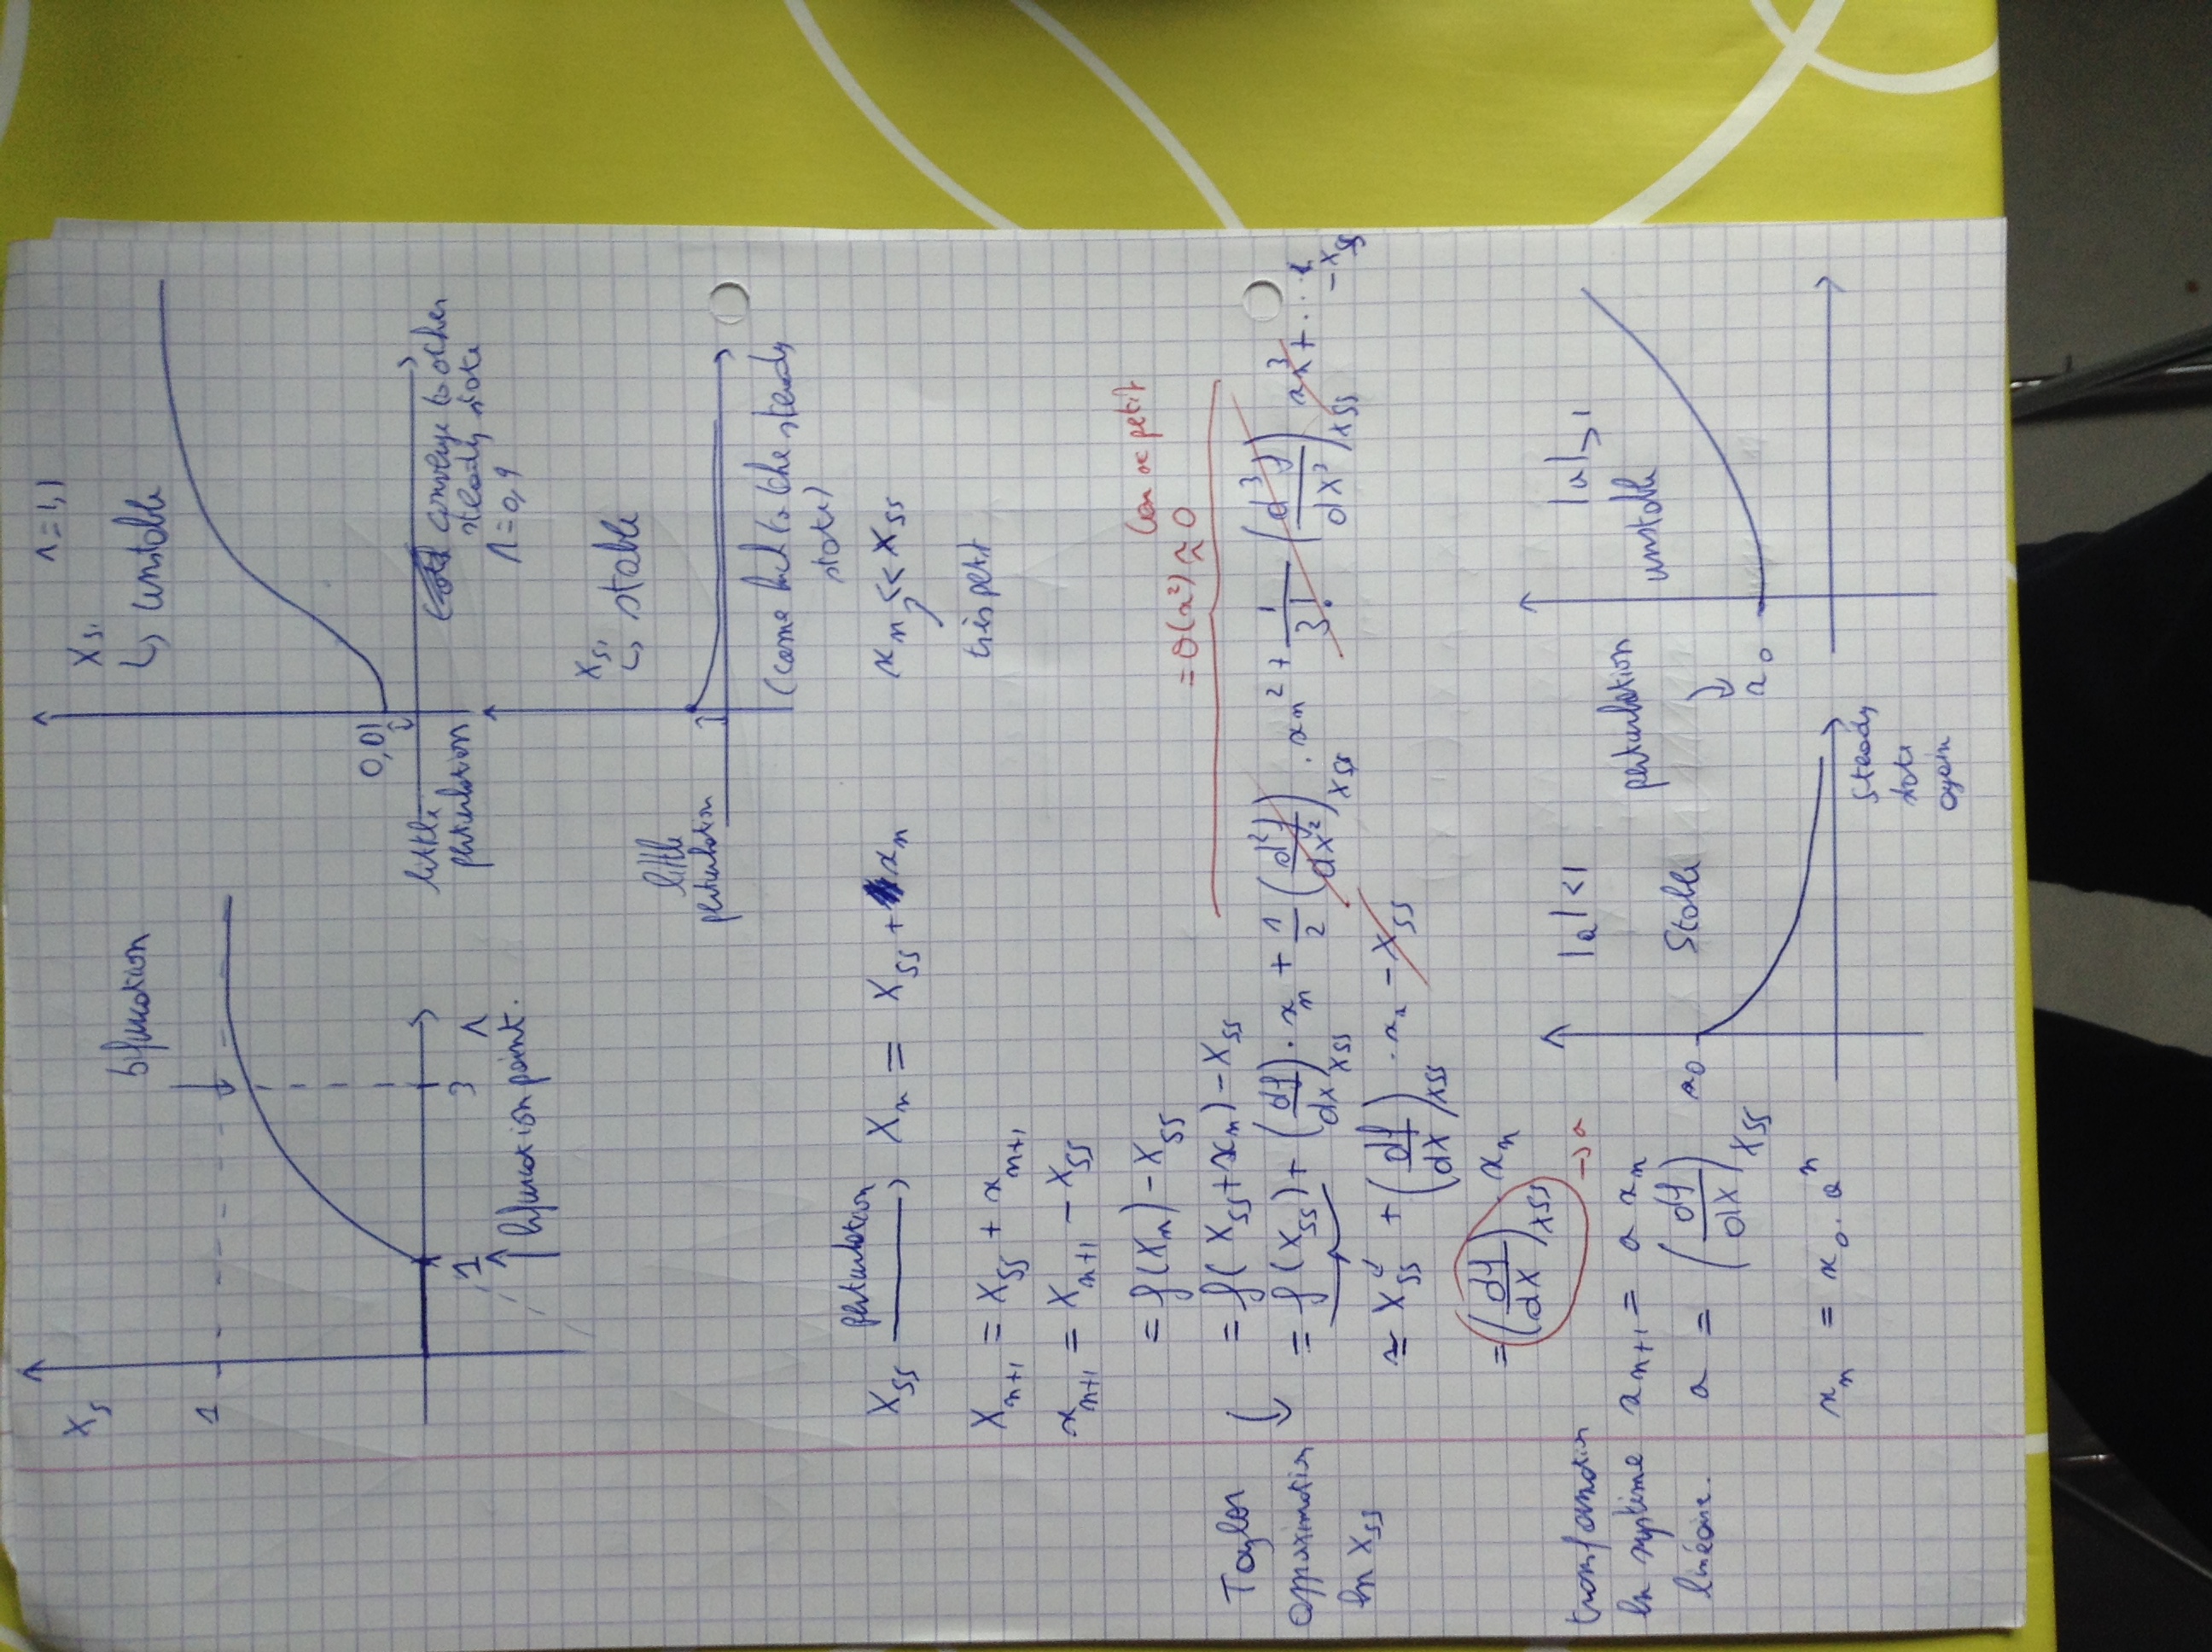 X_s
1
bifurcation
1
3
r
bifurcation point.
X_{s1} r = 1,1
↳ unstable
0,01
little perturbation
converge to other
steady state
r = 0,9
X_{s1}
↳ stable
little perturbation
(come back to the steady
state)
X_{ss} perturbation → X_n = X_{ss} + x_n
x_n << X_{ss}
très petit
X_{n+1} = X_{ss} + x_{n+1}
x_{n+1} = X_{n+1} - X_{ss}
= f(X_n) - X_{ss}
= f(X_{ss} + x_n) - X_{ss}
= θ(x²) ≈ 0
car x petit
Taylor
approximation
en X_{ss}
= f(X_{ss}) + (df/dX)_{X_{ss}} · x_n + 1/2 (d²f/dX²)_{X_{ss}} · x_n² + 1/3! (d³f/dX³)_{X_{ss}} x_n³ + ... - X_{ss}
≈ X_{ss} + (df/dX)_{X_{ss}} · x_n - X_{ss}
= (df/dX)_{X_{ss}} · x_n
→ a
transformation
en système
linéaire.
x_{n+1} = a x_n
a = (df/dX)_{X_{ss}}
x_n = x_0 · a^n
|a| < 1
stable
x_0
steady
state
again
perturbation
x_0
|a| > 1
unstable